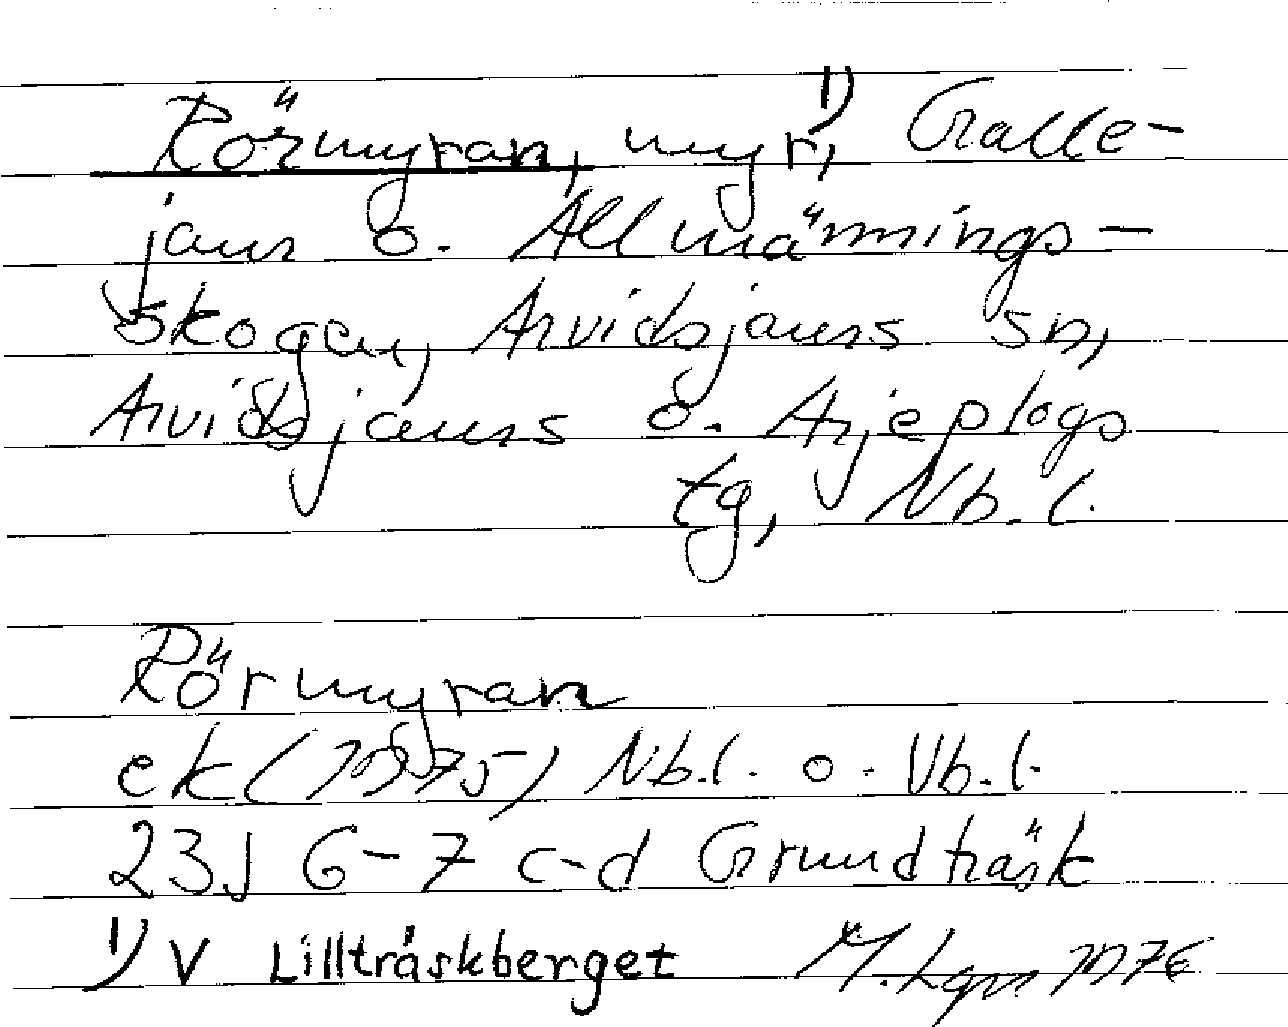 Rörmyran, myr,¹⁾ Galle-
jaur o. Allmännings-
skogen, Arvidsjaurs sn,
Arvidsjaurs o. Arjeplogs
tg, Nb.l.
Rörmyran
ek (1975) Nb.l. o. Vb.l.
23J 6-7 c-d Grundträsk
1) V Lillträskberget M. Lgn 1976